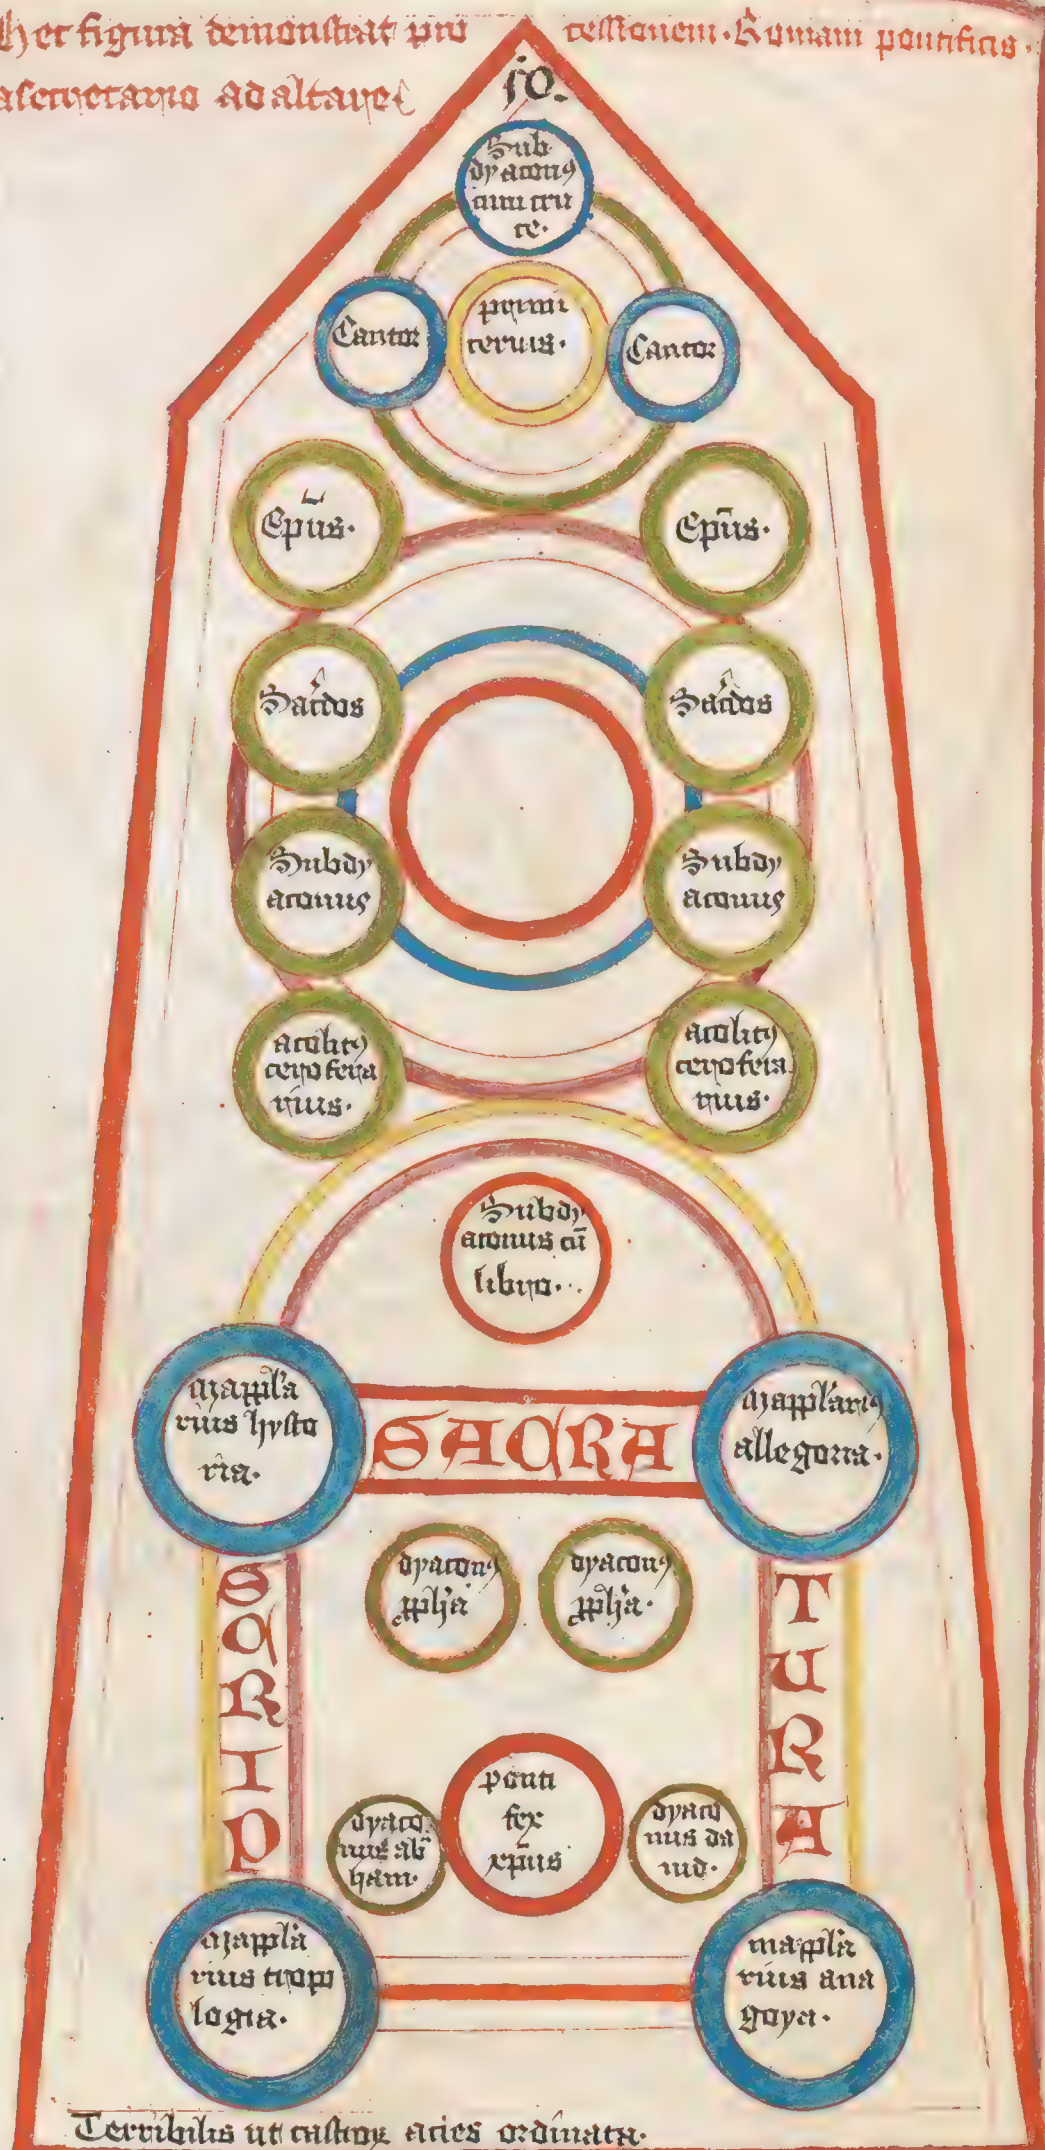 Hec figura demonstrat pro cessionem. Romani pontificis.
a secretario ad altare
Sub
dyaconꝰ
cum cru
ce.
Cantor
primi
cerius.
Cantor
Ep̄us.
Ep̄us.
Sac̓dos
Sac̓dos
Subdy
aconus
Subdy
aconus
acolitꝰ
cerofera
rius.
acolitꝰ
cerofera
rius.
Subdy
aconus cū
libro.
mappla
rius hysto
ria.
SACRA
mapplariꝰ
allegoria.
dyaconꝰ
ꝓph̓a
dyaconꝰ
ꝓph̓a.
S
C
R
I
P
T
U
R
A
dyaco
nus ab̄
ham.
ponti
fex
xp̄us
dyaco
nus da
uid.
mappla
rius tropo
logia.
mappla
rius ana
goya.
Terribilis ut castroꝝ acies ordinata.